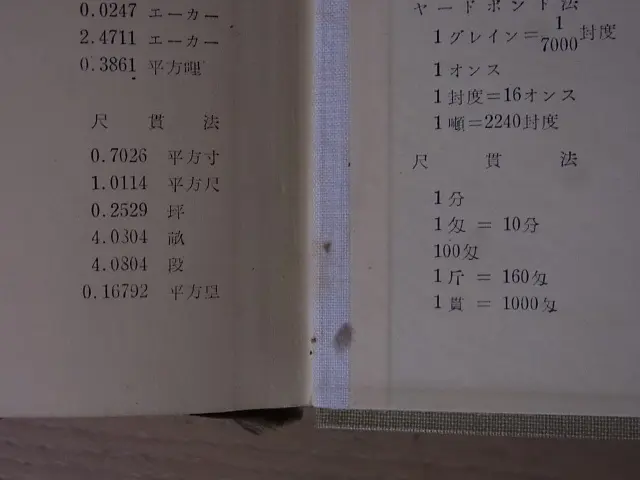 0.0247 エーカー
2.4711 エーカー
0.3861 平方哩
尺貫法
0.7026 平方寸
1.0114 平方尺
0.2529 坪
4.0304 畝
4.0804 段
0.16792 平方里
ヤードポンド法
1グレイン=1/7000封度
1オンス
1封度=16オンス
1噸=2240封度
尺貫法
1分
1匁 = 10分
100匁
1斤 = 160匁
1貫 = 1000匁